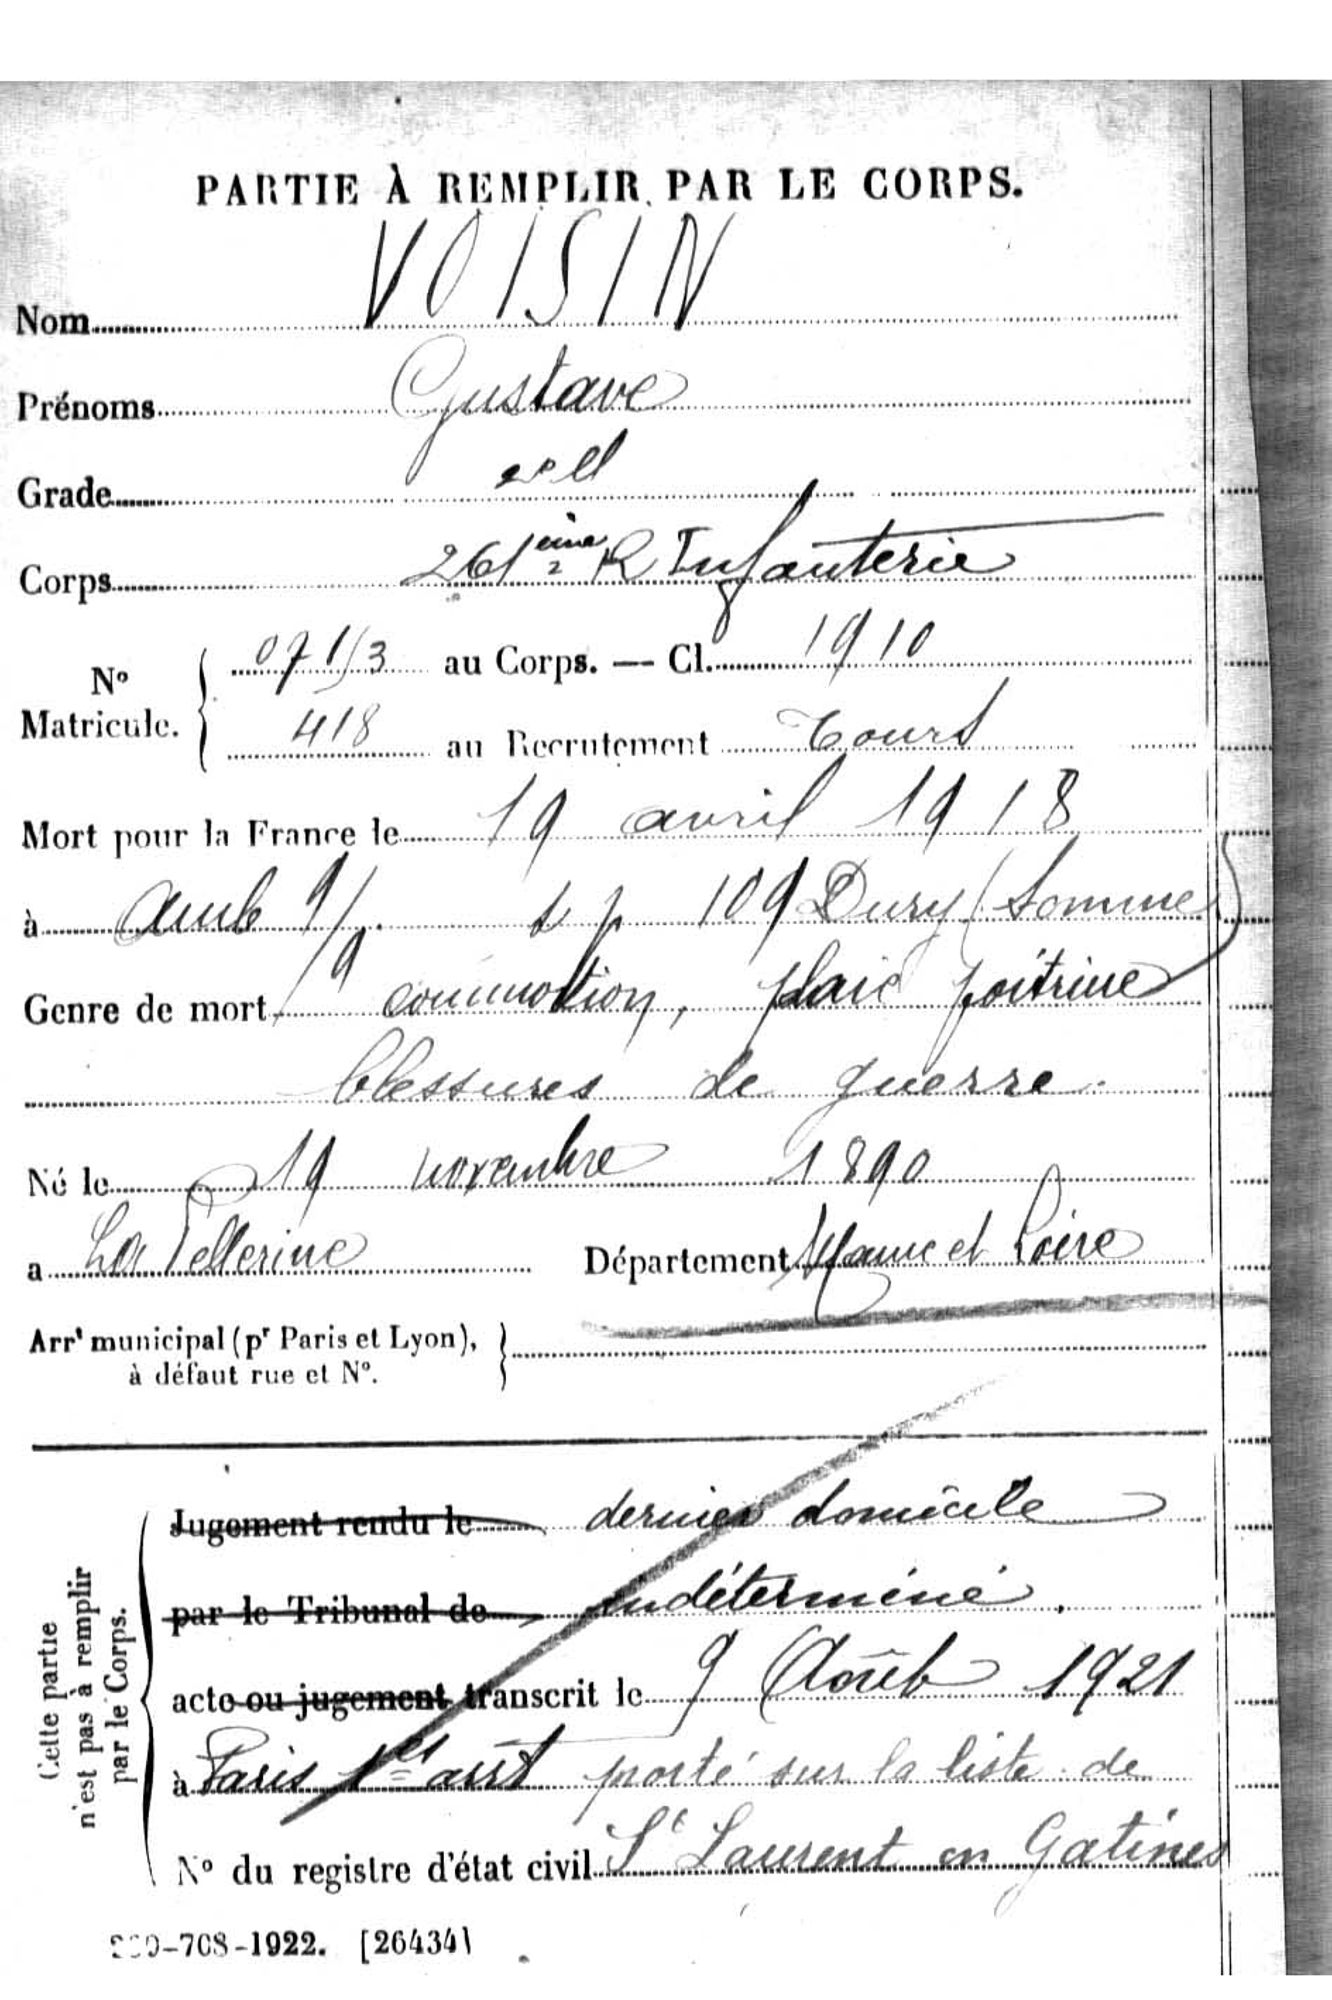 PARTIE À REMPLIR PAR LE CORPS.
Nom VOISIN
Prénoms Gustave
Grade 2e cl
Corps 261ième R Infanterie
N° Matricule. 07113 au Corps. — Cl. 1910
418 au Recrutement Tours
Mort pour la France le 19 avril 1918
à Amb 9/9 s p 109 Dury (Somme)
Genre de mort commotion, plaie poitrine
blessures de guerre.
Né le 19 novembre 1890
a La Pellerine Département Maine et Loire
Arrt municipal (pr Paris et Lyon),
à défaut rue et N°.
Cette partie n'est pas à remplir par le Corps.
Jugement rendu le dernier domicile
par le Tribunal de indéterminé.
acte ou jugement transcrit le 9 Août 1921
à Paris 1er arrt porté sur la liste de
N° du registre d'état civil St Laurent en Gatines
-708-1922. [26434]